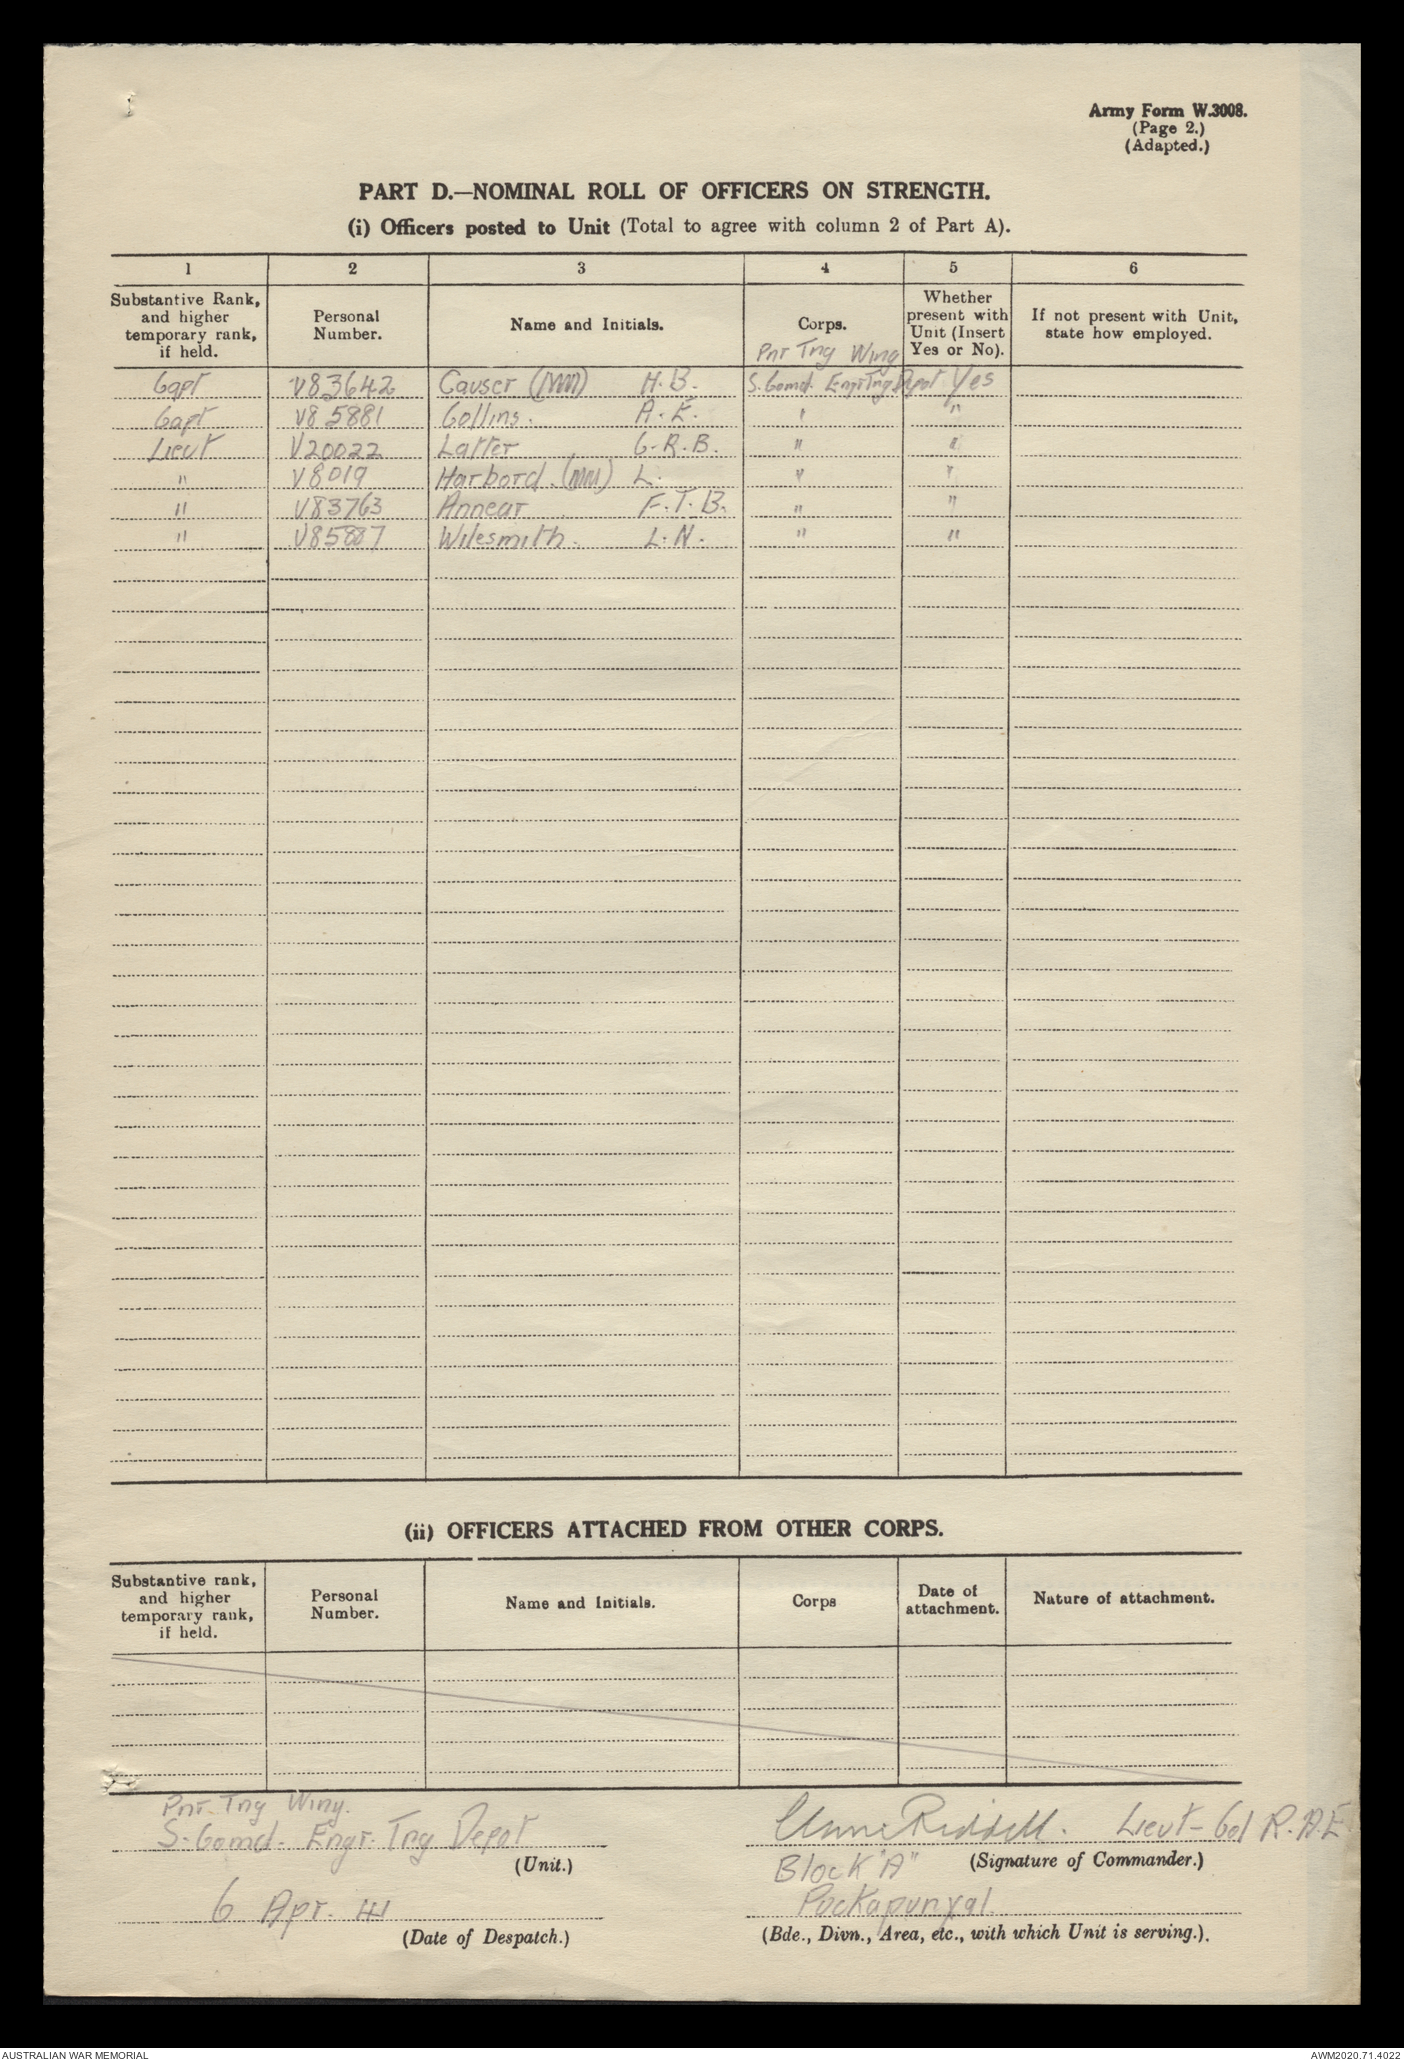 Army Form W.3008.
(Page 2.)
(Adapted.)
PART D.—NOMINAL ROLL OF OFFICERS ON STRENGTH.
(i) Officers posted to Unit (Total to agree with column 2 of Part A).
1 2 3 4 5 6
Substantive Rank, and higher temporary rank, if held. Personal Number. Name and Initials. Corps. Whether present with Unit (Insert Yes or No). If not present with Unit, state how employed.
Pnr Tng Wing
Capt V83642 Causer (MM) H.B. S. Comd. Engr Tng Depot Yes
Capt V85881 Collins. A.E. " "
Lieut V20022 Latter G.R.B. " "
" V8019 Harbord. (MM) L. " "
" V83763 Annear F.T.B. " "
" V85887 Wilesmith. L.N. " "
(ii) OFFICERS ATTACHED FROM OTHER CORPS.
Substantive rank, and higher temporary rank, if held. Personal Number. Name and Initials. Corps Date of attachment. Nature of attachment.
Pnr. Tng Wing.
S. Comd. Engr. Tng Depot
(Unit.)
6 Apr. 41
(Date of Despatch.)
Riddell. Lieut-Col R.A.E
(Signature of Commander.)
Block "A"
Puckapunyal.
(Bde., Divn., Area, etc., with which Unit is serving.).
AUSTRALIAN WAR MEMORIAL
AWM2020.71.4022